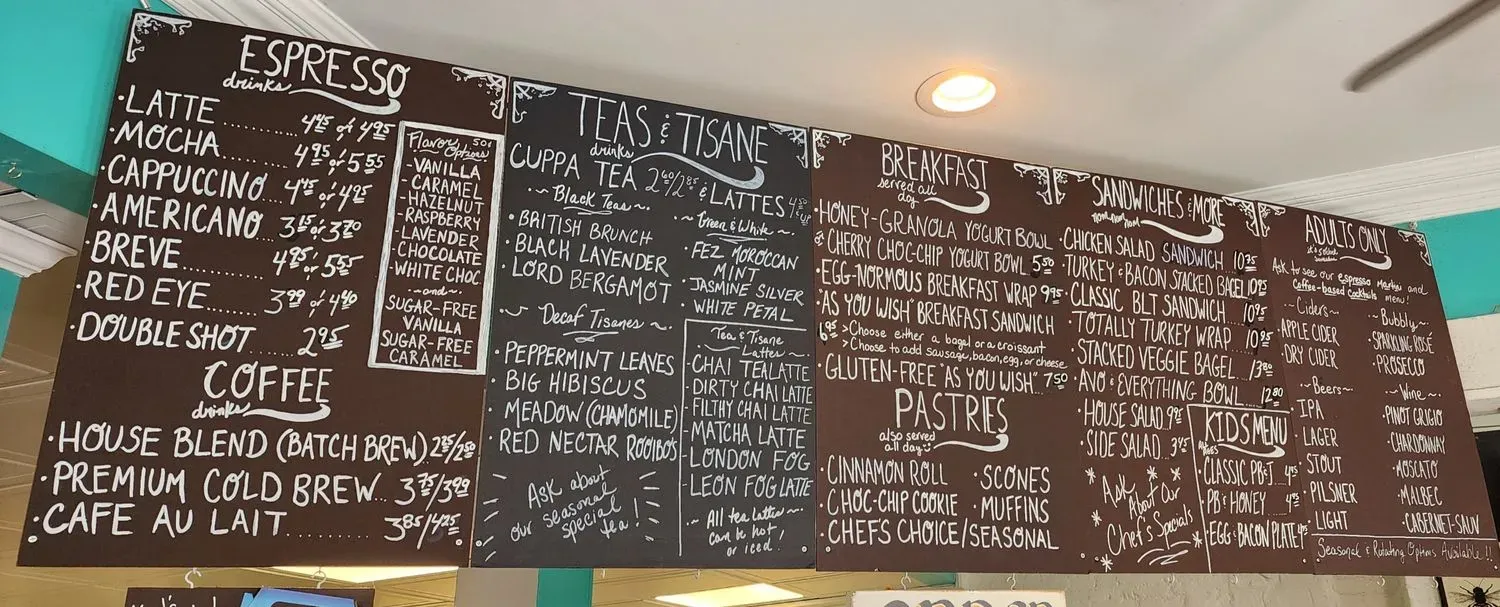 ESPRESSO
drinks
·LATTE ........ 4 45 or 4 95
·MOCHA ........ 4 95 or 5 55
·CAPPUCCINO .. 4 45 or 4 95
·AMERICANO ... 3 15 or 3 70
·BREVE ........ 4 95 or 5 55
·RED EYE ...... 3 99 or 4 40
·DOUBLE SHOT ..... 2 95
Flavor Options 50¢
-VANILLA
-CARAMEL
-HAZELNUT
-RASPBERRY
-LAVENDER
-CHOCOLATE
-WHITE CHOC
~and~
SUGAR-FREE
VANILLA
SUGAR-FREE
CARAMEL
COFFEE
drinks
·HOUSE BLEND (BATCH BREW) 2 25/2 50
·PREMIUM COLD BREW... 3 75/3 99
·CAFE AU LAIT ......... 3 85/4 25
TEAS & TISANE
drinks
CUPPA TEA 2 60/2 85 & LATTES
~Black Teas~
·BRITISH BRUNCH
·BLACH LAVENDER
·LORD BERGAMOT
~Decaf Tisanes~
·PEPPERMINT LEAVES
·BIG HIBISCUS
·MEADOW (CHAMOMILE)
·RED NECTAR ROOIBOS
Ask about
our seasonal
special
tea!
~Green & White~
·FEZ MOROCCAN
MINT
·JASMINE SILVER
·WHITE PETAL
Tea & Tisane
~Lattes~
-CHAI TEA LATTE
-DIRTY CHAI LATTE
-FILTHY CHAI LATTE
-MATCHA LATTE
-LONDON FOG
-LEON FOG LATTE
~All tea lattes~
can be hot
or iced!
BREAKFAST
served all
day
·HONEY-GRANOLA YOGURT BOWL
& CHERRY CHOC-CHIP YOGURT BOWL 5 50
·EGG-NORMOUS BREAKFAST WRAP 9 95
·"AS YOU WISH" BREAKFAST SANDWICH
6 95 >Choose either a bagel or a croissant
>Choose to add sausage, bacon, egg, or cheese
·GLUTEN-FREE "AS YOU WISH" 7 50
PASTRIES
also served
all day:)
·CINNAMON ROLL
·CHOC-CHIP COOKIE
·CHEF'S CHOICE/SEASONAL
·SCONES
·MUFFINS
SANDWICHES & MORE
nom nom nom
·CHICKEN SALAD SANDWICH 10 75
·TURKEY & BACON STACKED BAGEL 10 95
·CLASSIC BLT SANDWICH 10 95
·TOTALLY TURKEY WRAP 10 95
·STACKED VEGGIE BAGEL 13 80
·AVO & EVERYTHING BOWL 12 80
·HOUSE SALAD 9 95
·SIDE SALAD... 3 45
Ask
About Our
Chef's Specials
KIDS MENU
·CLASSIC PB&J... 4 95
·PB & HONEY... 4 95
·EGG & BACON PLATE
ADULTS ONLY
Ask to see our espresso Martini and
Coffee-based Cocktails menu!
~Ciders~
APPLE CIDER
DRY CIDER
~Beers~
·IPA
·LAGER
·STOUT
·PILSNER
·LIGHT
~Bubbly~
·SPARKLING ROSE
·PROSECCO
~Wine~
·PINOT GRIGIO
·CHARDONNAY
·MOSCATO
·MALBEC
·CABERNET-SAUV
Seasonal & Rotating Options Available!!